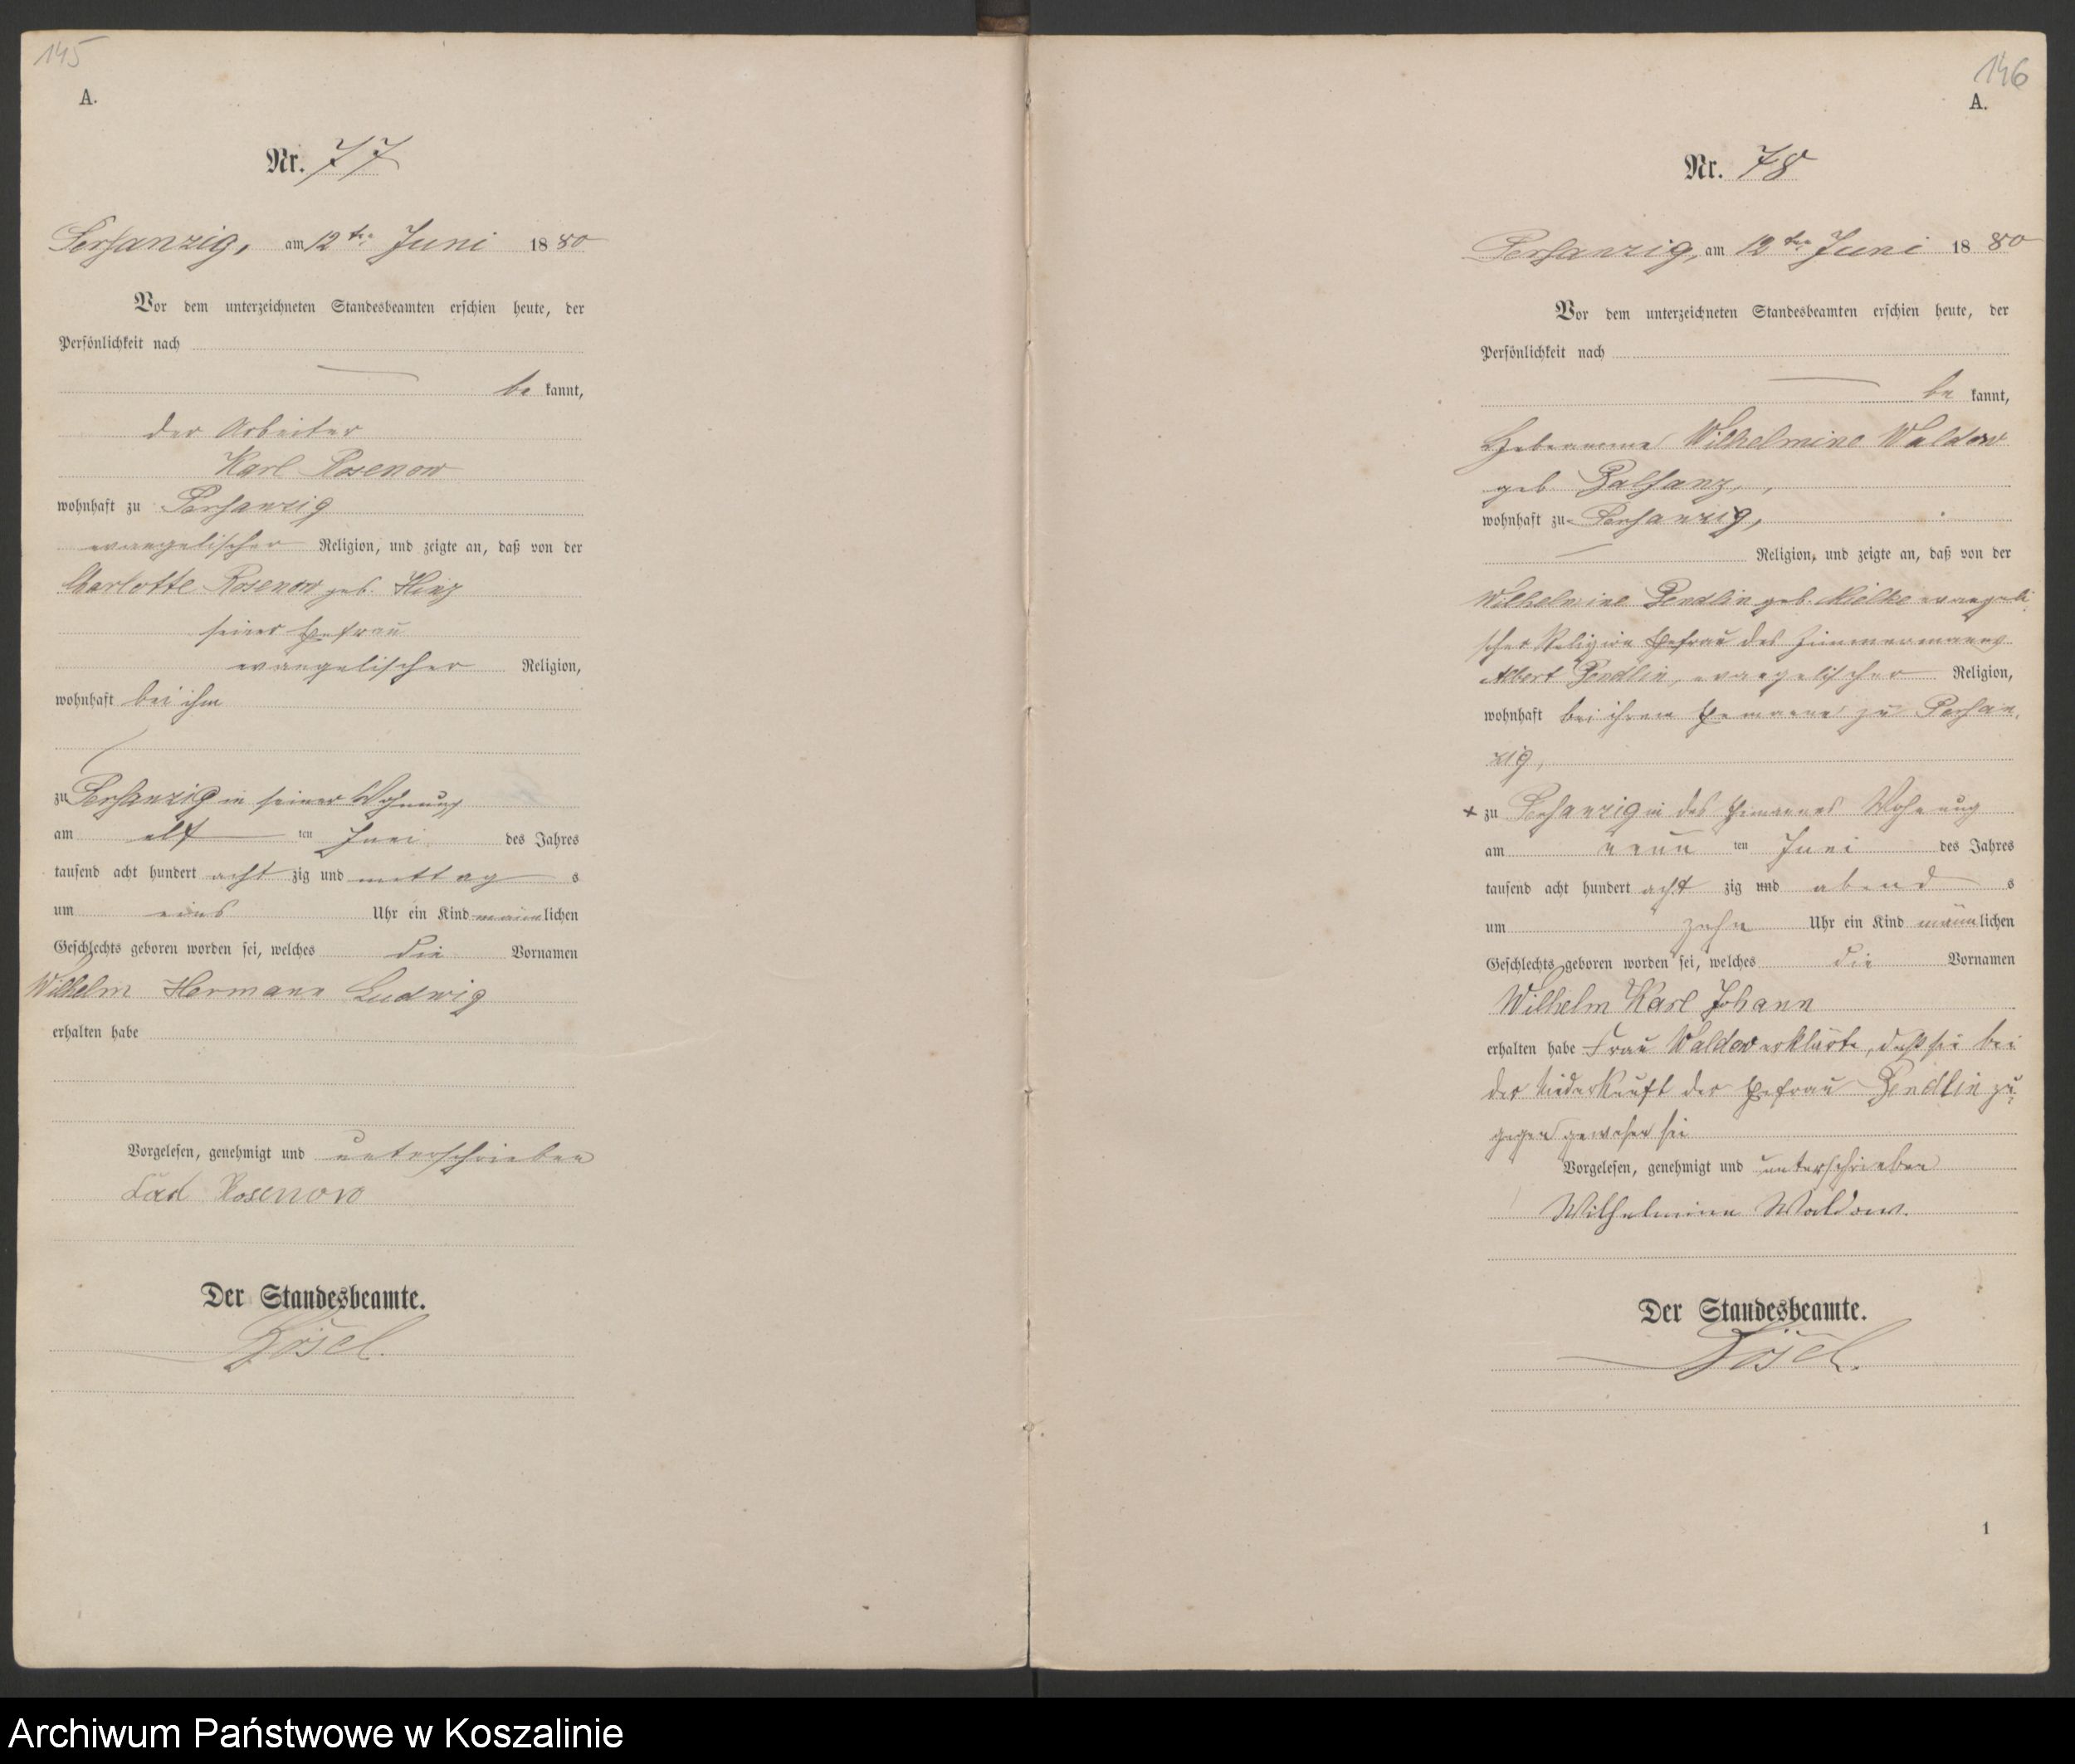 145
A.
Nr. 77
Persanzig, am 12ten Juni 1880
Vor dem unterzeichneten Standesbeamten erschien heute, der
Persönlichkeit nach
be kannt,
der Arbeiter
Karl Rosenow
wohnhaft zu Persanzig
evangelischer Religion, und zeigte an, daß von der
Charlotte Rosenow geb. Hinz
seiner Ehefrau
evangelischer Religion,
wohnhaft bei ihm
zu Persanzig in seiner Wohnung
am elf ten Juni des Jahres
tausend acht hundert acht zig und mittag s
um eins Uhr ein Kind männlichen
Geschlechts geboren worden sei, welches die Vornamen
Wilhelm Hermann Ludwig
erhalten habe
Vorgelesen, genehmigt und unterschrieben
Carl Rosenow
Der Standesbeamte.
Kösel.
146
A.
Nr. 78
Persanzig, am 12ten Juni 1880
Vor dem unterzeichneten Standesbeamten erschien heute, der
Persönlichkeit nach
be kannt,
Hebeamme Wilhelmine Waldow
geb. Balfanz,
wohnhaft zu Persanzig,
Religion, und zeigte an, daß von der
Wilhelmine Gendlin geb. Mielke evangeli
scher Religion Ehefrau des Zimmermanns
Albert Gendlin, evangelischer Religion,
wohnhaft bei ihrem Ehemanne zu Persan
zig,
+ zu Persanzig in des Ehemannes Wohnung
am neun ten Juni des Jahres
tausend acht hundert acht zig und abend s
um zehn Uhr ein Kind männlichen
Geschlechts geboren worden sei, welches die Vornamen
Wilhelm Karl Johann
erhalten habe Frau Waldow erklärte, daß sie bei
der Niederkunft der Ehefrau Gendlin zu
gegen gewesen sei
Vorgelesen, genehmigt und unterschrieben
Wilhelmine Waldow.
Der Standesbeamte.
Kösel.
1
Archiwum Państwowe w Koszalinie